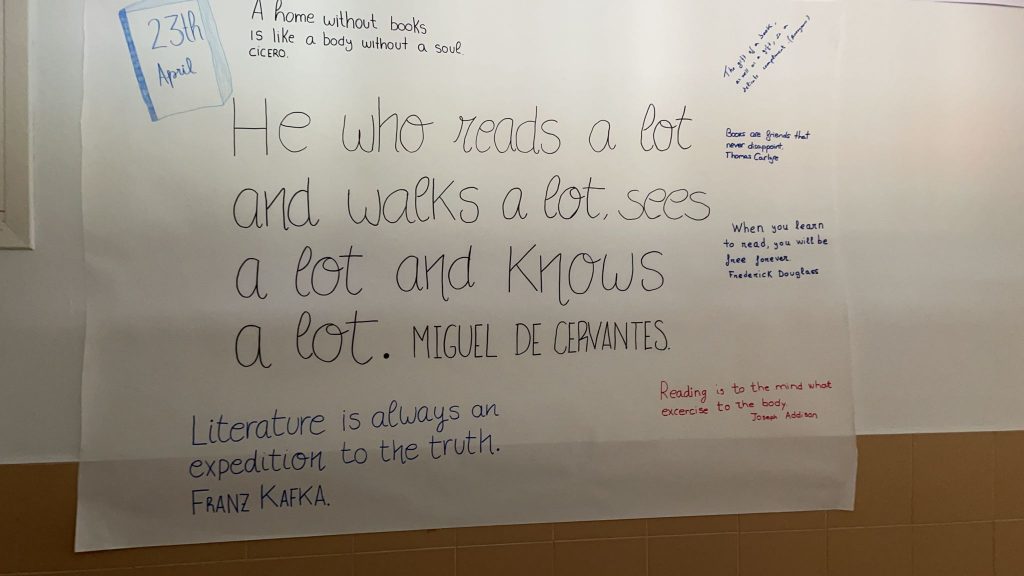 23th
April
A home without books
is like a body without a soul.
CICERO.
He who reads a lot
and walks a lot, sees
a lot and knows
a lot. MIGUEL DE CERVANTES.
Literature is always an
expedition to the truth.
FRANZ KAFKA.
The gift of a book,
as well as a gift, is a
delicate compliment (Anonymous)
Books are friends that
never disappoint.
Thomas Carlyle
When you learn
to read, you will be
free forever
Frederick Douglass
Reading is to the mind what
excercise to the body.
Joseph Addison